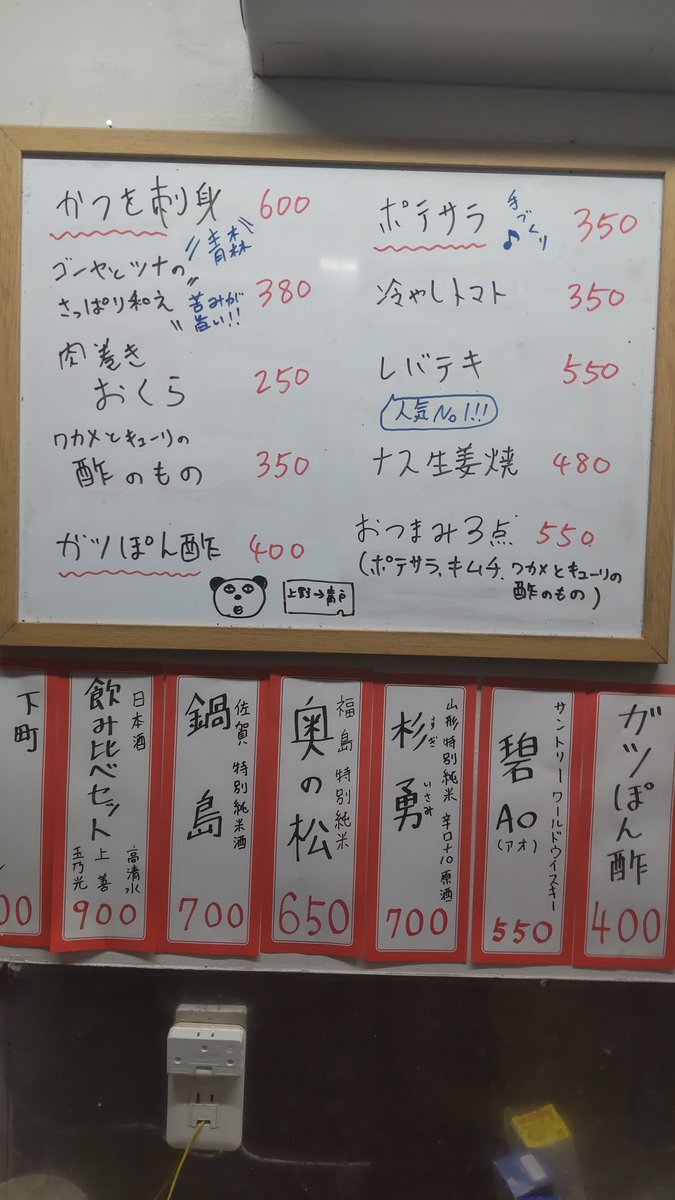 かつを刺身 600
〃青森〃
ゴーヤとツナの
さっぱり和え 380
〃苦みが
旨い!!〃
肉巻き
おくら 250
ワカメとキューリの
酢のもの 350
ガツぽん酢 400
上野→青戸
ポテサラ 350
手づくり♪
冷やしトマト 350
レバテキ 550
人気No1!!!
ナス生姜焼 480
おつまみ3点 550
(ポテサラ、キムチ、ワカメとキューリの
酢のもの)
下町
00
日本酒
飲み比べセット
高清水
上善
玉乃光
900
佐賀 特別純米酒
鍋島
700
福島 特別純米
奥の松
650
山形特別純米 辛口+10原酒
杉勇
すぎ いさみ
700
サントリーワールドウイスキー
碧 AO
(アオ)
550
ガツぽん酢
400